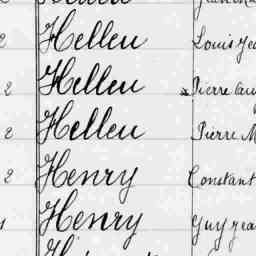 2 Helleu Louis Jea
2 Helleu Pierre Au
2 Helleu Pierre M
2 Henry Constant
Henry Guy Jea